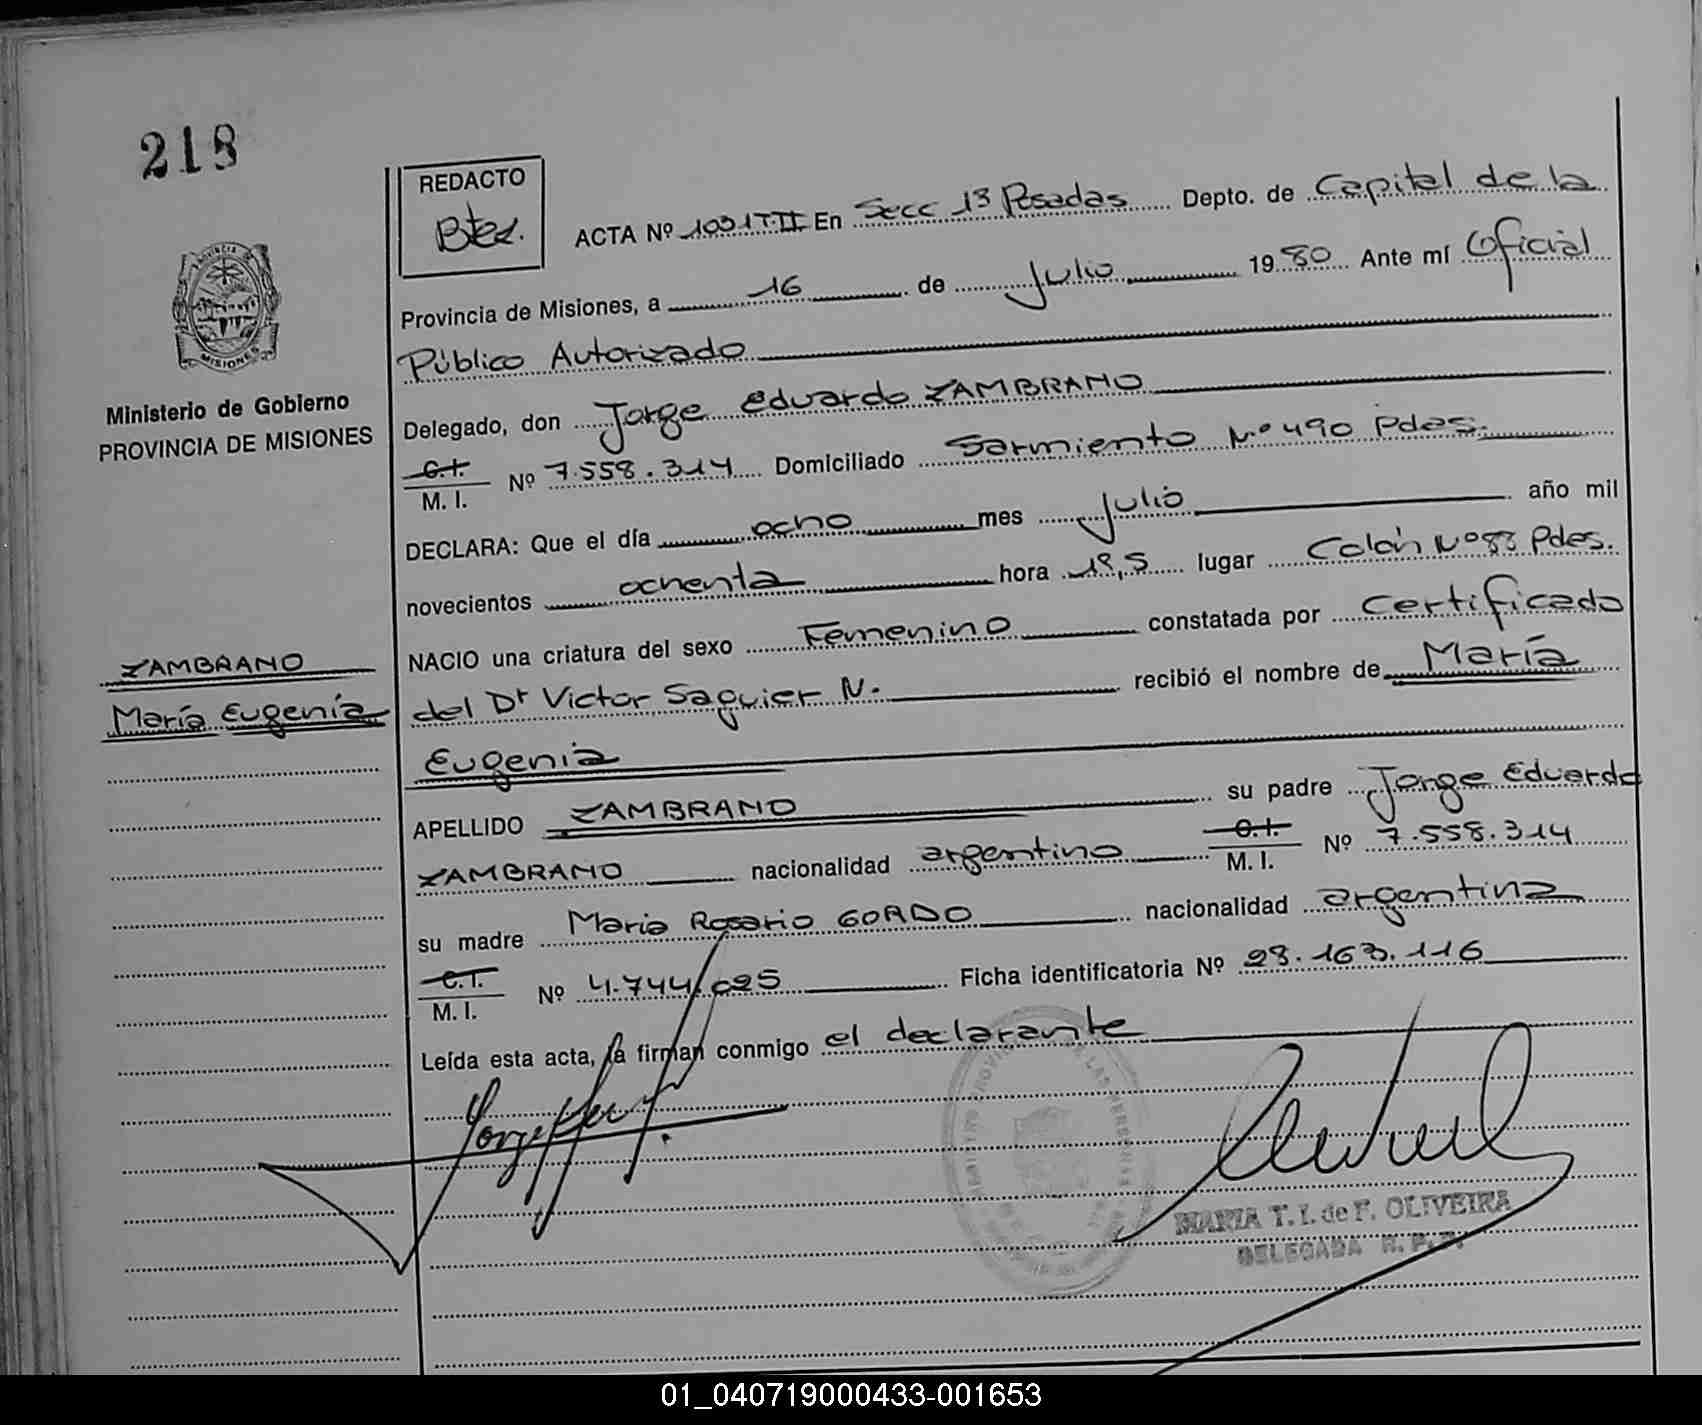 218
REDACTO
Btes.
ACTA Nº 1031 T·II En Secc 13 Posadas Depto. de Capital de la
Provincia de Misiones, a 16 de Julio 1980 Ante mí Oficial
Público Autorizado
PROVINCIA
MISIONES
Ministerio de Gobierno
PROVINCIA DE MISIONES
Delegado, don Jorge Eduardo ZAMBRANO
C.I.
M. I. Nº 7.558.314 Domiciliado Sarmiento Nº 490 Pdas.
DECLARA: Que el día ocho mes Julio año mil
novecientos ochenta hora 18,5 lugar Colón Nº 88 Pdas.
NACIO una criatura del sexo Femenino constatada por Certificado
ZAMBRANO
María Eugenia
del Dr Victor Saguier N. recibió el nombre de María
Eugenia
APELLIDO ZAMBRANO su padre Jorge Eduardo
ZAMBRANO nacionalidad argentino C.I. M. I. Nº 7.558.314
su madre María Rosario GORDO nacionalidad argentina
C.I.
M. I. Nº 4.744.025 Ficha identificatoria Nº 28.163.116
Leída esta acta, la firman conmigo el declarante
MARIA T. I. de F. OLIVEIRA
DELEGADA R. P. P.
01_040719000433-001653